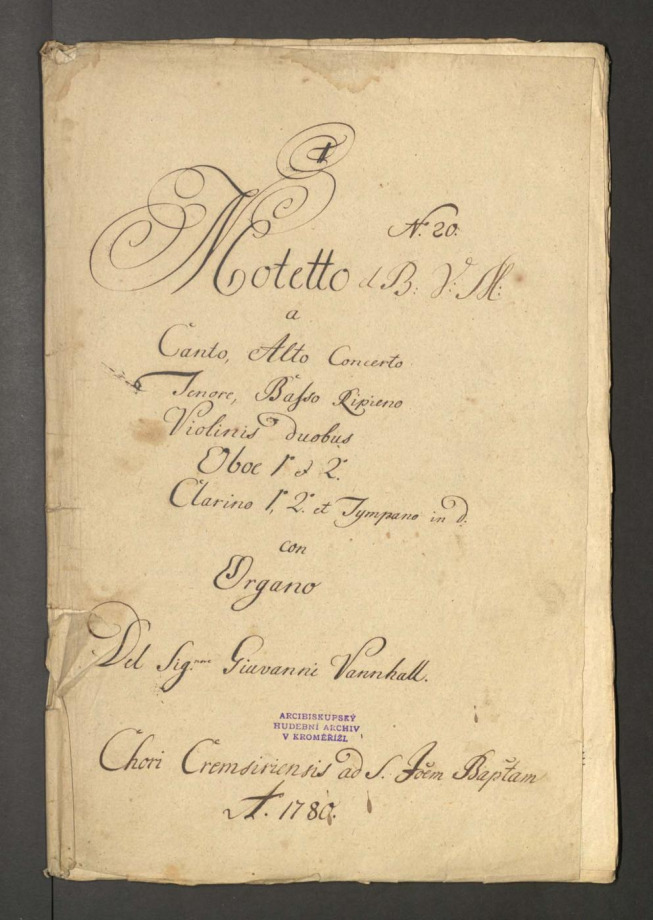 N. 20.
Motetto d B: V: M:
a
Canto, Alto Concerto
Tenore, Basso Ripieno
Violinis duobus
Oboe 1º et 2º
Clarino 1º, 2º et Tympano in d.
con
Organo
Del Sig.nore Giuvanni Vannhall.
ARCIBISKUPSKÝ
HUDEBNÍ ARCHIV
V KROMĚŘÍŽI
Chori Cremsiriensis ad S. Joem Baptam
A. 1780.